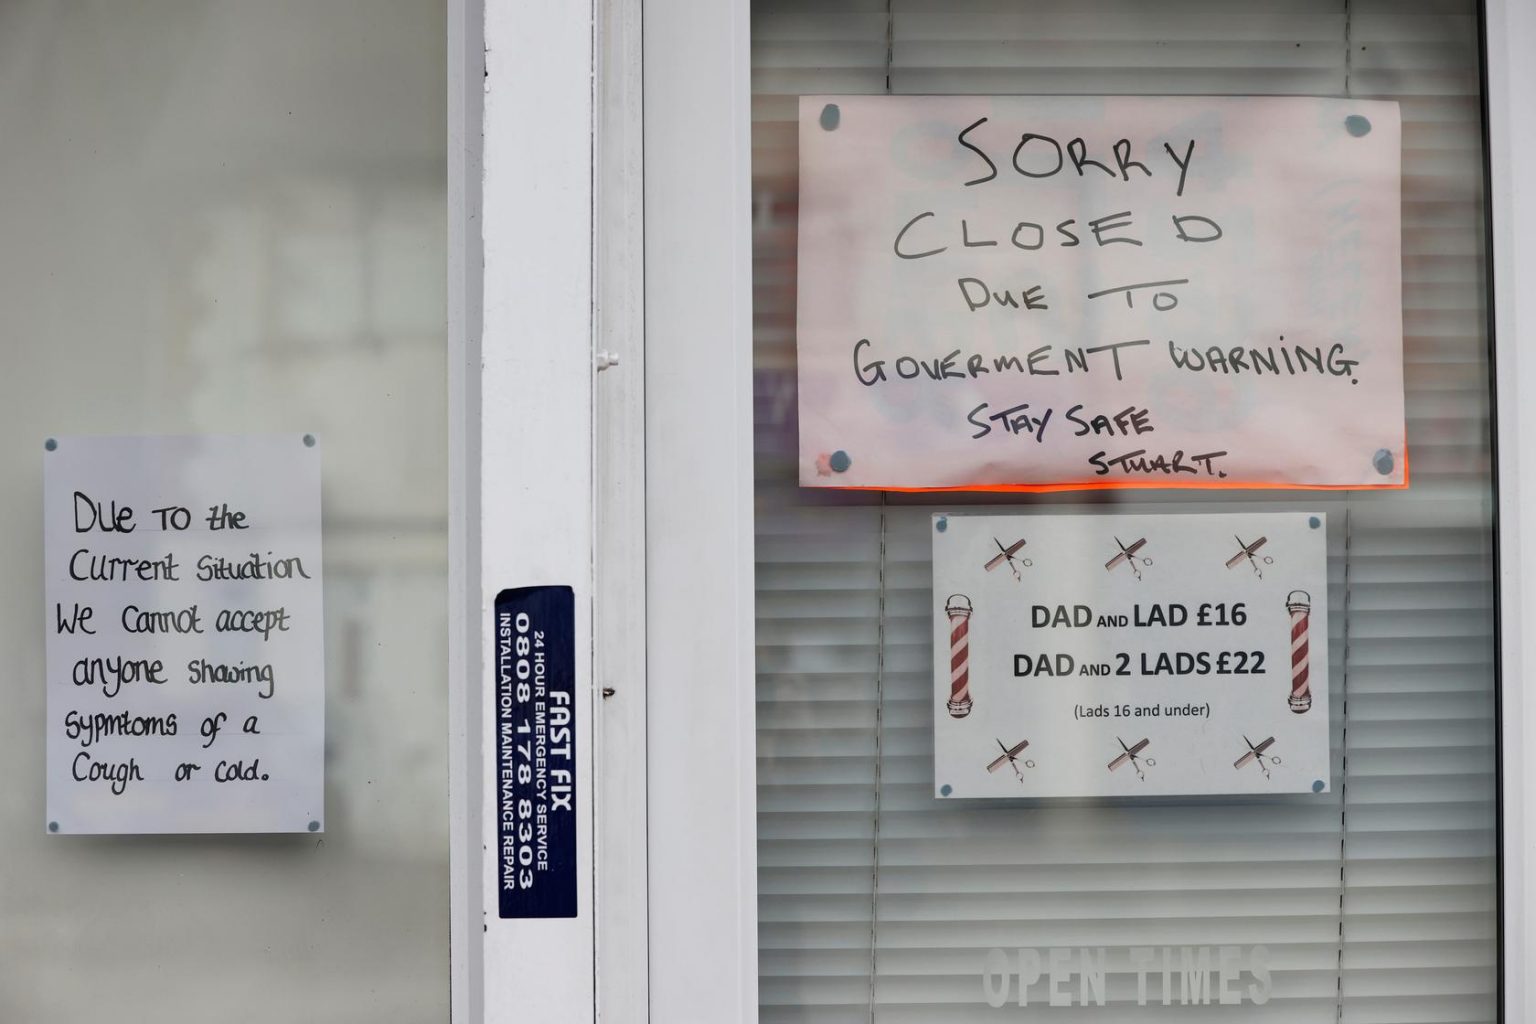 SORRY
CLOSED
DUE TO
GOVERMENT WARNING.
STAY SAFE
STUART.
Due TO the
Current Situation
We Cannot accept
anyone showing
sypmtoms of a
Cough or cold.
DAD AND LAD £16
DAD AND 2 LADS £22
(Lads 16 and under)
FAST FIX
24 HOUR EMERGENCY SERVICE
0808 178 8303
INSTALLATION MAINTENANCE REPAIR
OPEN TIMES